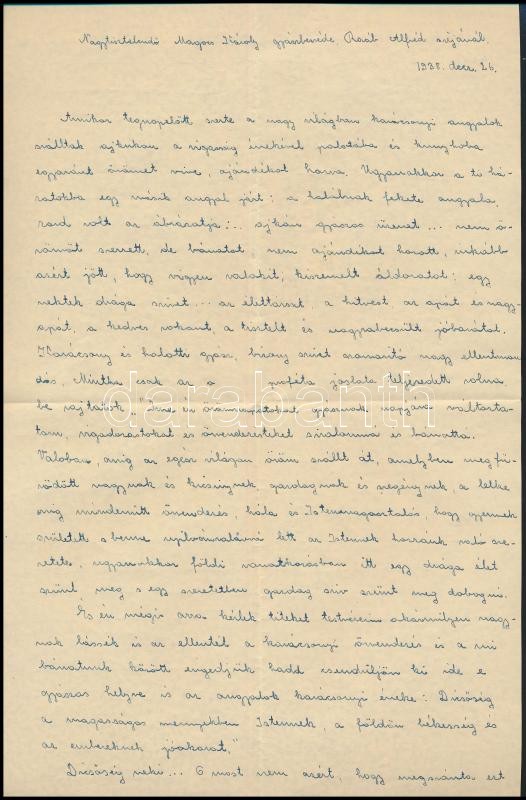 Nagytiszteletű Magocs Károly gyászbeszéde Raáb Alfréd sírjánál.
1938. decz. 26.
Amikor tegnapelőtt szerte a nagy világban karácsonyi angyalok
szálltak ajkukon a vigasság énekével palotába és kunyhóba
egyaránt örömet vive, ajándékot hozva. Ugyanakkor a ti há-
zatokba egy másik angyal járt: a halálnak fekete angyala,
zord volt az ábrázatja:.. ajkán gyászos üzenet... nem ö-
römöt szerzett, de bánatot nem ajándékot hozott, inkább
azért jött, hogy vigyen valakit, kiszemelt áldozatot: egy
nektek drága szivet... az élettársat, a hitvest, az apát és nagy-
apát, a kedves rokont, a tisztelt és nagyrabecsült jóbarátot.
Karácsony és halotti gyász, bizony szivet szomorító nagy ellentmon
dás. Mintha csak az a próféta jóslata teljesedett volna
be rajtatok „Ime én örömnapotokat gyásznak napjává változtat-
tam, vigadozástokat és örvendezésteket siralommá és bánattá.
Valóban, míg az egész világon öröm szállt át, amelyben megfü-
rödött nagynak és kicsinynek gazdagnak és szegénynek, a lelke
míg mindenütt örvendezés, hála és Istenmagasztalás, hogy gyermek
született s benne nyilvánvalóvá lett az Istennek hozzánk való sze-
retete, ugyanakkor földi vonatkozásban itt egy drága élet
szünt meg s egy szeretetben gazdag sziv szünt meg dobogni.
És én mégis arra kérlek titeket testvéreim akármilyen nagy-
nak lássék is az ellentét a karácsonyi örvendezés és a mi
bánatunk között engedjük hadd csendüljön ki ide e
gyászos helyre is az angyalok karácsonyi éneke: Dicsőség
a magasságos mennyekben Istennek, a földön békesség és
az embereknek jóakarat."
Dicsőség neki... Ó most nem azért, hogy megszánta ezt
darabanth